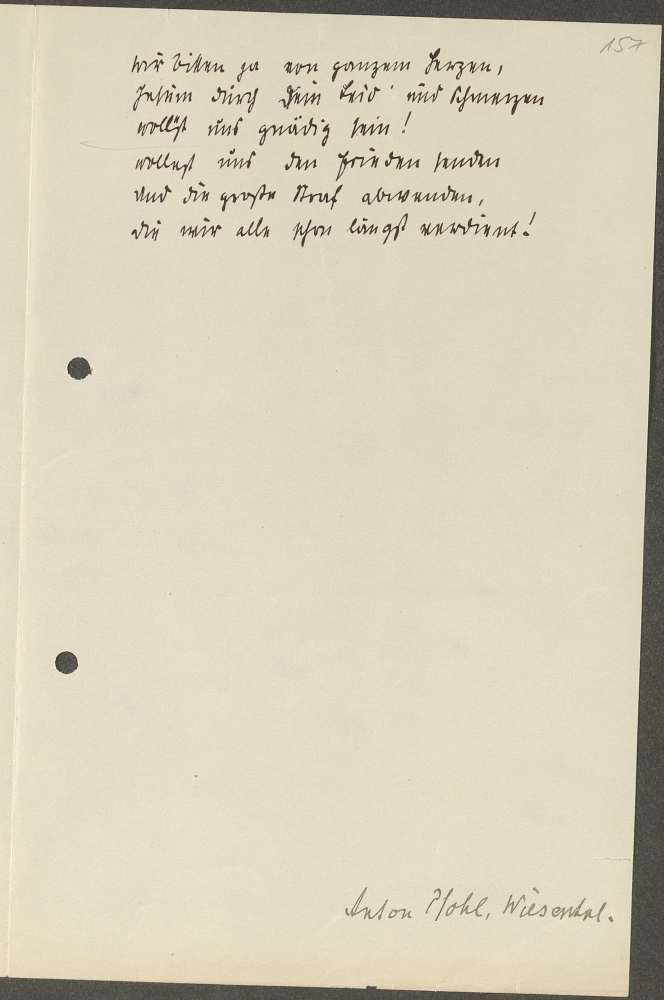 157
wir bitten ja von ganzem Herzen,
Jesum durch Dein Leid' und Schmerzen
wollst uns gnädig sein!
wollest uns den Frieden senden
und die große Straf abwenden,
die wir alle schon längst verdient!
Anton Pfohl, Wiesenthal.